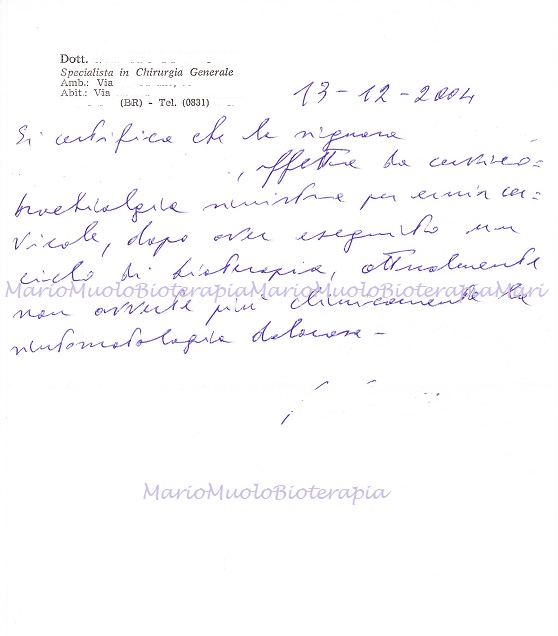 Dott.
Specialista in Chirurgia Generale
Amb.: Via
Abit.: Via
(BR) - Tel. (0831)
13-12-2004
Si certifica che la signora
, affetta da cervico=
brachialgia sinistra per ernia cer-
vicale, dopo aver eseguito un
ciclo di bioterapia, attualmente
MarioMuoloBioterapiaMarioMuoloBioterapiaMari
non avverte più clinicamente la
sintomatologia dolorosa -
MarioMuoloBioterapia